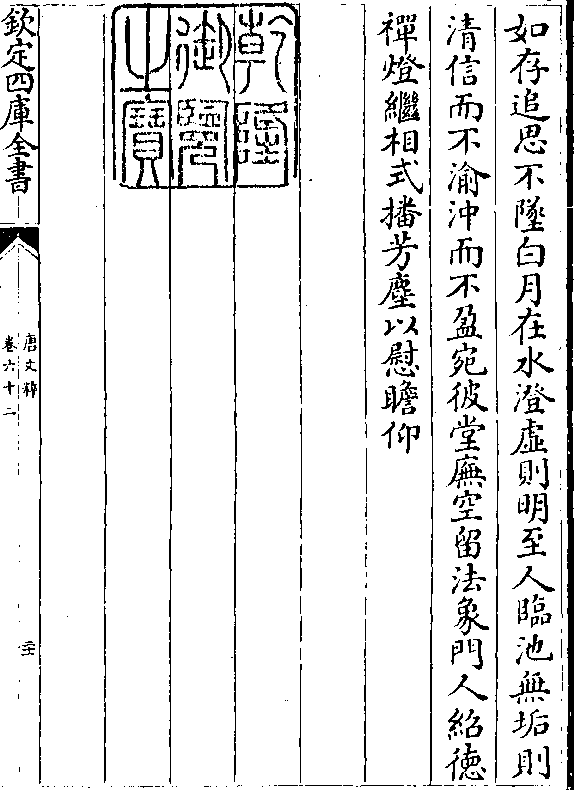 如存追思不墜白月在水澄虛則明至人臨池無垢則
清信而不渝沖而不盈宛彼堂廡空留法象門人紹德
禪燈繼相式播芳塵以慰瞻仰
乾隆御覽之寶
欽定四庫全書
唐文粹
卷六十二